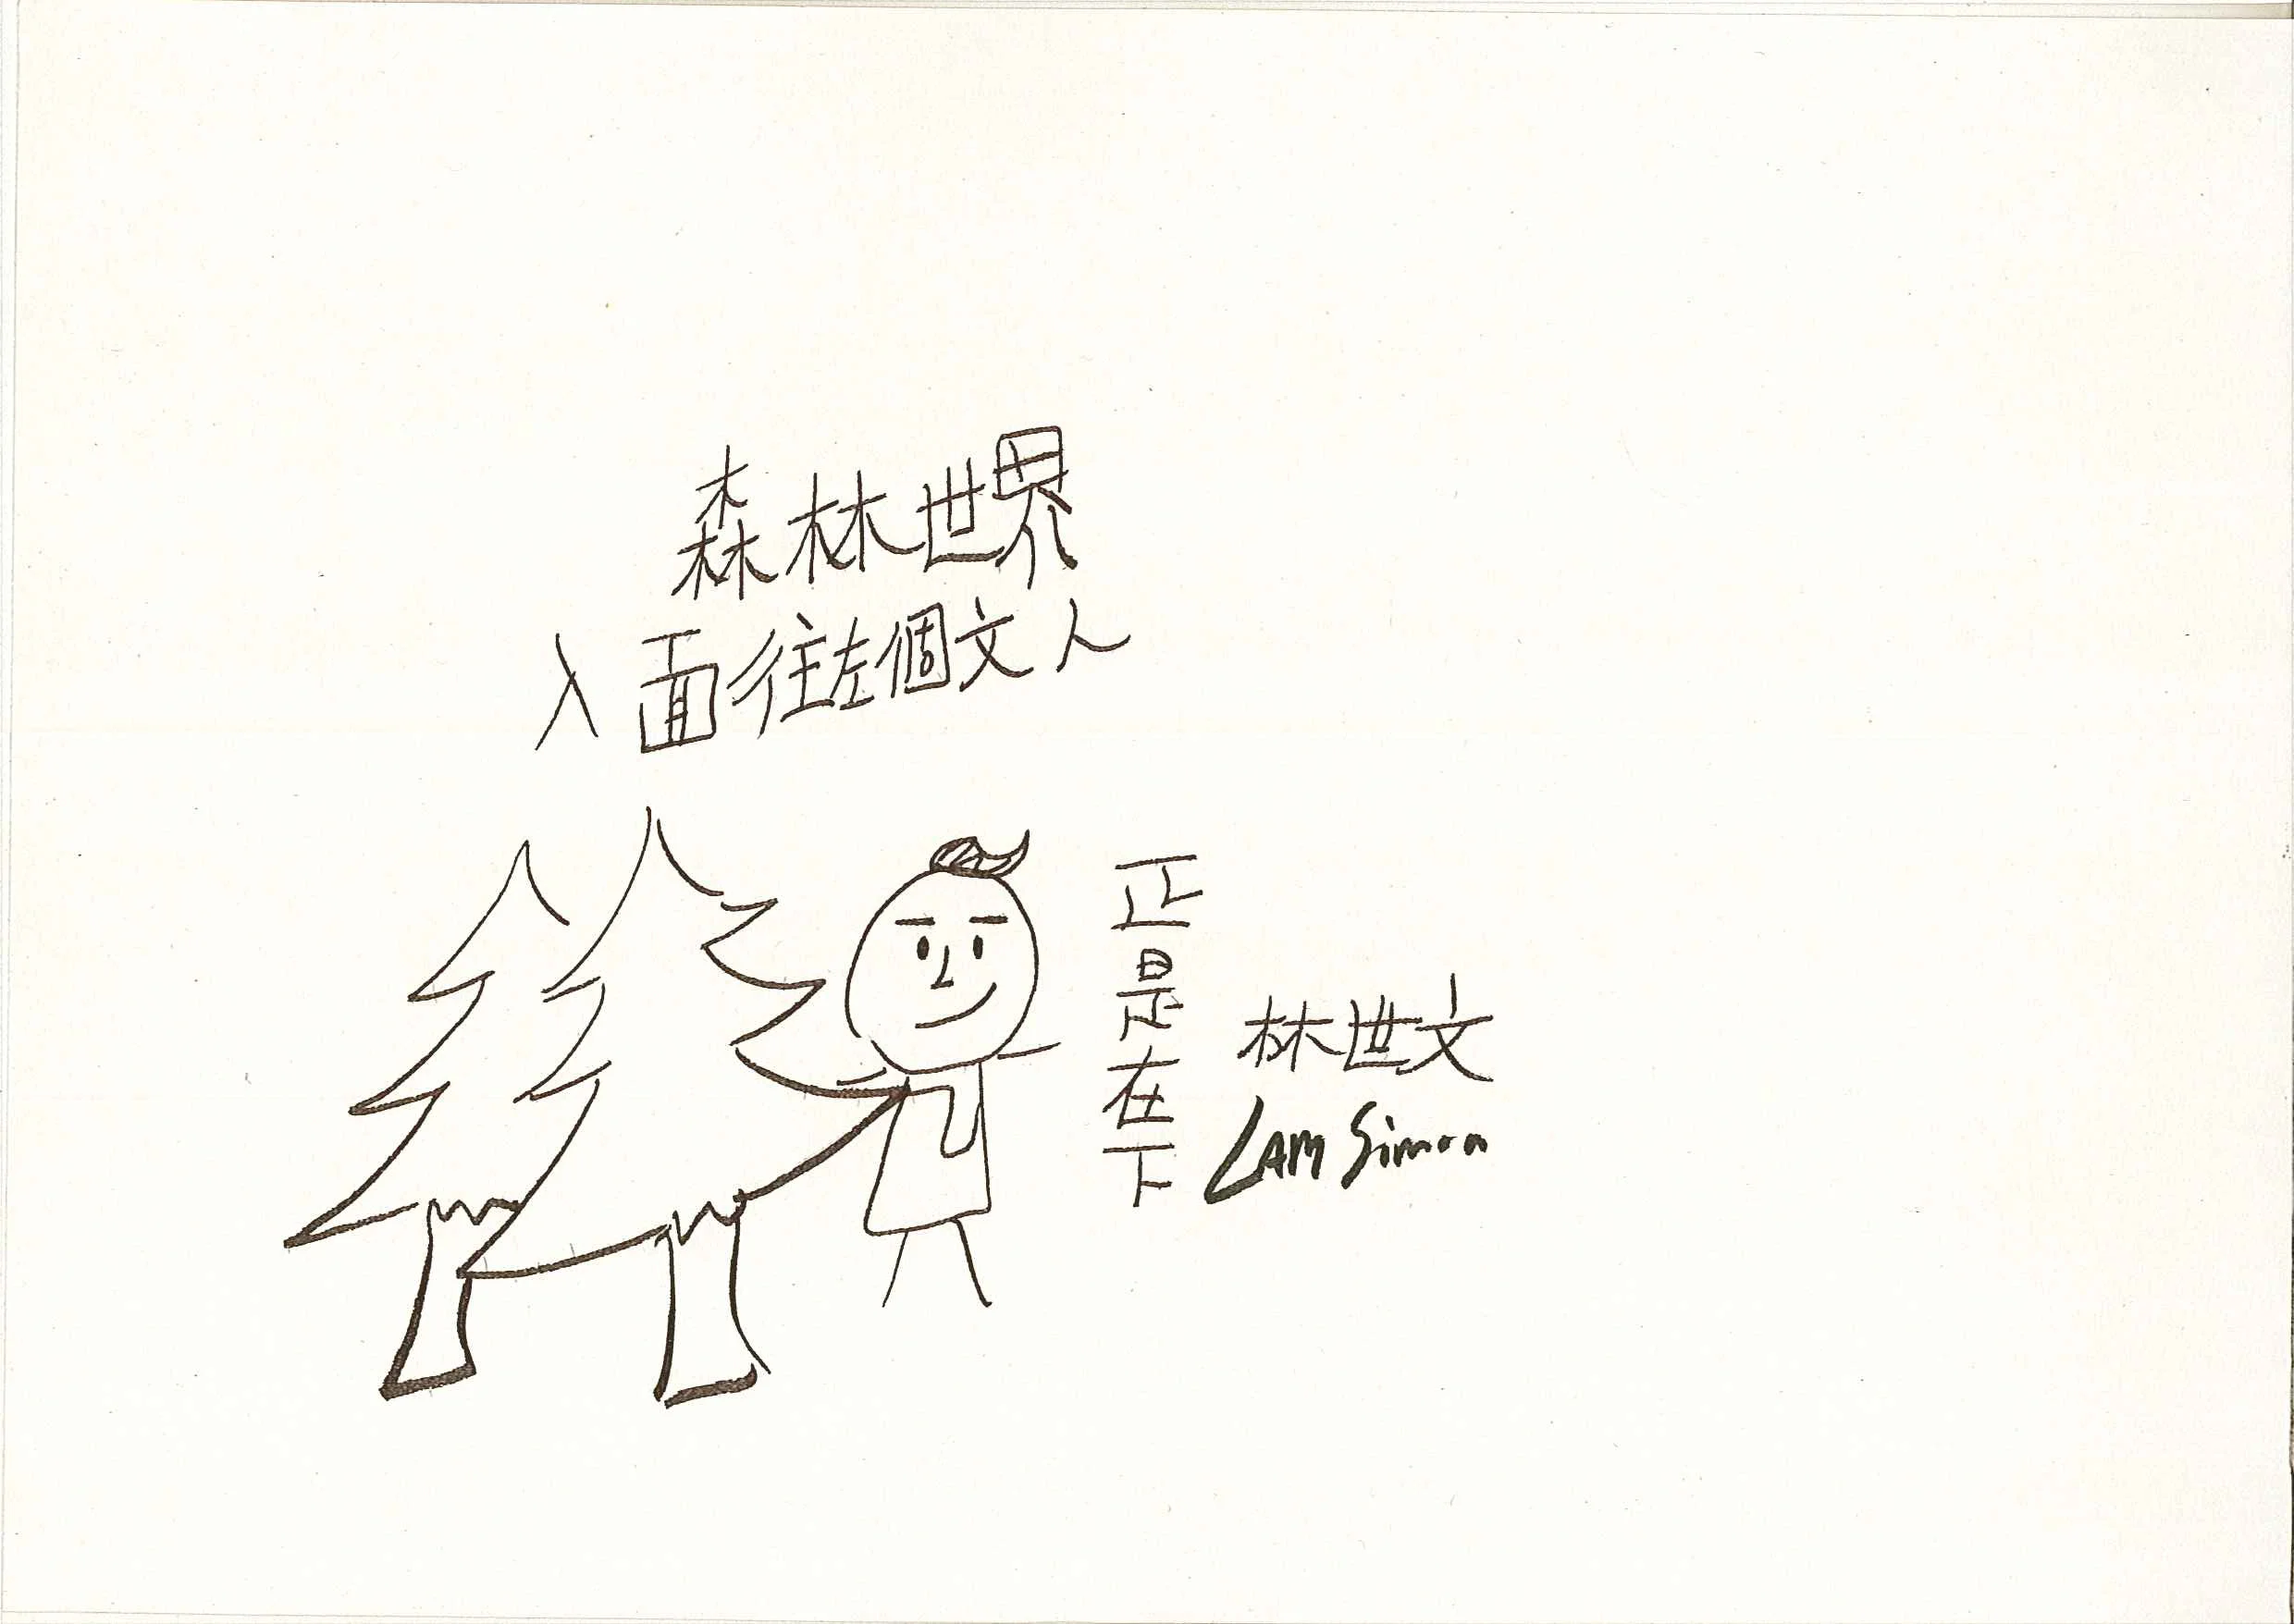 森林世界
入面往左個文人
正是在下
林世文
LAM Simon